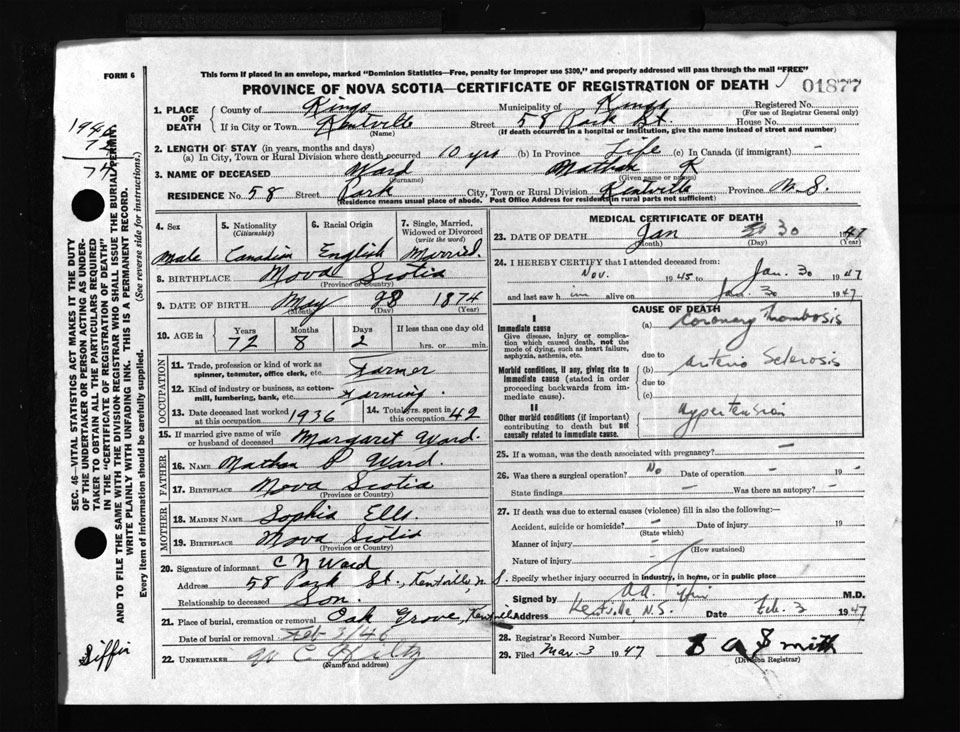 FORM 6
This form if placed in an envelope, marked "Dominion Statistics—Free, penalty for improper use $300," and properly addressed will pass through the mail "FREE"
PROVINCE OF NOVA SCOTIA—CERTIFICATE OF REGISTRATION OF DEATH 01877
1. PLACE OF DEATH County of Kings Municipality of Kings Registered No.
(For use of Registrar General only)
If in City or Town Kentville Street 58 Park St. House No.
(Name) (If death occurred in a hospital or institution, give the name instead of street and number)
2. LENGTH OF STAY (in years, months and days)
(a) In City, Town or Rural Division where death occurred 10 yrs (b) In Province Life (c) In Canada (if immigrant) -
3. NAME OF DECEASED Ward Nathan K
(Surname) (Given name or names)
RESIDENCE No. 58 Street Park City, Town or Rural Division Kentville Province N.S.
(Residence means usual place of abode. Post Office Address for residents in rural parts not sufficient)
4. Sex Male
5. Nationality (Citizenship) Canadian
6. Racial Origin English
7. Single, Married, Widowed or Divorced (write the word) Married.
8. BIRTHPLACE Nova Scotia
(Province or Country)
9. DATE OF BIRTH May 28 1874
(Month) (Day) (Year)
10. AGE in? Years Months Days If less than one day old
72 8 2 hrs. or min.
OCCUPATION
11. Trade, profession or kind of work as spinner, teamster, office clerk, etc. Farmer
12. Kind of industry or business, as cotton-mill, lumbering, bank, etc. Farming
13. Date deceased last worked at this occupation 1936
14. Total yrs. spent in this occupation 42
15. If married give name of wife or husband of deceased Margaret Ward.
FATHER
16. NAME Nathan P Ward.
17. BIRTHPLACE Nova Scotia
(Province or Country)
MOTHER
18. MAIDEN NAME Sophia Ells
19. BIRTHPLACE Nova Scotia
(Province or Country)
20. Signature of informant C N Ward
Address 58 Park St., Kentville, N S.
Relationship to deceased Son.
21. Place of burial, cremation or removal Oak Grove, Kentville
Date of burial or removal Feb 3/46
22. UNDERTAKER W C Hiltz
(Name and address)
MEDICAL CERTIFICATE OF DEATH
23. DATE OF DEATH Jan 30 1947
(Month) (Day) (Year)
24. I HEREBY CERTIFY that I attended deceased from:
Nov. 1945 to Jan. 30 1947
and last saw h im alive on Jan. 30 1947
CAUSE OF DEATH
I
Immediate cause
Give disease, injury or complication which caused death, not the mode of dying, such as heart failure, asphyxia, asthenia, etc.
(a) Coronary Thrombosis
due to
Morbid conditions, if any, giving rise to immediate cause (stated in order proceeding backwards from immediate cause).
(b) Arterio Sclerosis
due to
(c)
II
Other morbid conditions (if important) contributing to death but not causally related to immediate cause.
Hypertension
25. If a woman, was the death associated with pregnancy? -
26. Was there a surgical operation? No Date of operation - 19 -
State findings - Was there an autopsy? -
27. If death was due to external causes (violence) fill in also the following:—
Accident, suicide or homicide? - Date of injury - 19
(State which)
Manner of injury -
(How sustained)
Nature of injury -
Specify whether injury occurred in industry, in home, or in public place
Signed by M.D.
Address Kentville N.S. Date Feb. 3 1947
28. Registrar's Record Number
29. Filed Mar. 3 1947 B A Smith
(Division Registrar)
SEC. 46—VITAL STATISTICS ACT MAKES IT THE DUTY
OF THE UNDERTAKER OR PERSON ACTING AS UNDER-
TAKER TO OBTAIN ALL THE PARTICULARS REQUIRED
IN THE "CERTIFICATE OF REGISTRATION OF DEATH"
AND TO FILE THE SAME WITH THE DIVISION REGISTRAR WHO SHALL ISSUE THE BURIAL PERMIT.
WRITE PLAINLY WITH UNFADING INK. THIS IS A PERMANENT RECORD.
Every item of information should be carefully supplied. (See reverse side for instructions.)
1946
72
74